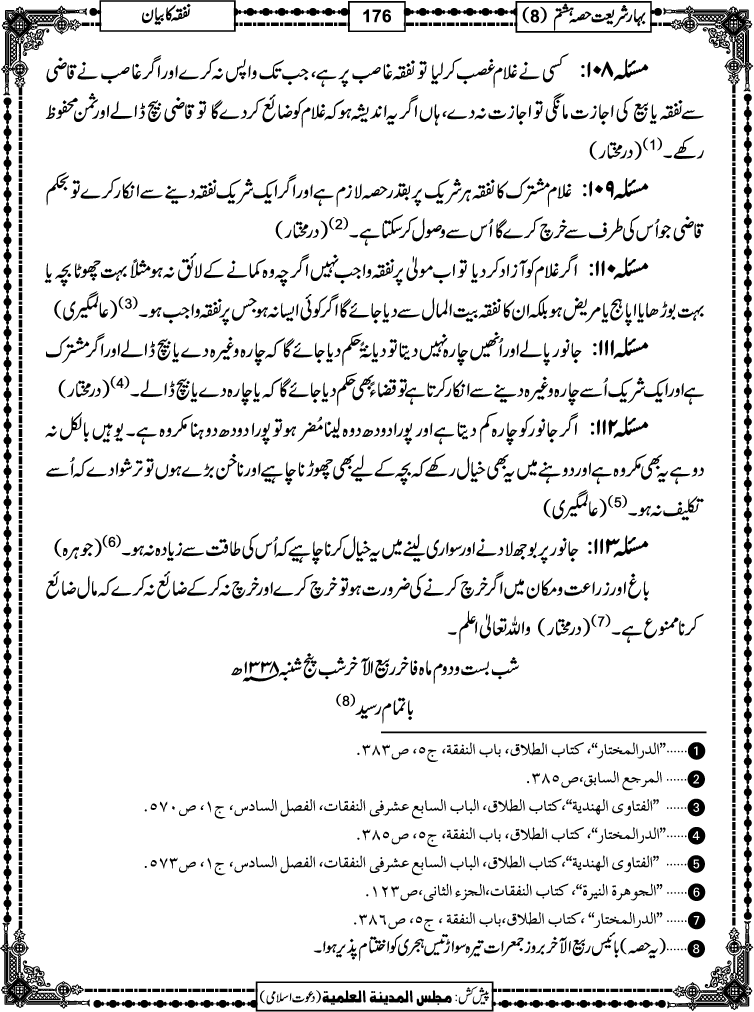 بہار شریعت حصہ ہشتم (8)
176
نفقہ کا بیان
مسئلہ ۱۰۸: کسی نے غلام غصب کر لیا تو نفقہ غاصب پر ہے، جب تک واپس نہ کرے اور اگر غاصب نے قاضی
سے نفقہ یا بیع کی اجازت مانگی تو اجازت نہ دے، ہاں اگر یہ اندیشہ ہو کہ غلام کو ضائع کر دے گا تو قاضی بیچ ڈالے اور ثمن محفوظ
رکھے۔(1) (درمختار)
مسئلہ ۱۰۹: غلام مشترک کا نفقہ ہر شریک پر بقدر حصہ لازم ہے اور اگر ایک شریک نفقہ دینے سے انکار کرے تو بحکم
قاضی جو اُس کی طرف سے خرچ کرے گا اُس سے وصول کر سکتا ہے۔(2) (درمختار)
مسئلہ ۱۱۰: اگر غلام کو آزاد کر دیا تو اب مولیٰ پر نفقہ واجب نہیں اگرچہ وہ کمانے کے لائق نہ ہو مثلاً بہت چھوٹا بچہ یا
بہت بوڑھا یا اپاہج یا مریض ہو بلکہ ان کا نفقہ بیت المال سے دیا جائے گا اگر کوئی ایسا نہ ہو جس پر نفقہ واجب ہو۔(3) (عالمگیری)
مسئلہ ۱۱۱: جانور پالے اور اُنھیں چارہ نہیں دیتا تو دیانۃً حکم دیا جائے گا کہ چارہ وغیرہ دے یا بیچ ڈالے اور اگر مشترک
ہے اور ایک شریک اُسے چارہ وغیرہ دینے سے انکار کرتا ہے تو قضاءً بھی حکم دیا جائے گا کہ یا چارہ دے یا بیچ ڈالے۔(4) (درمختار)
مسئلہ ۱۱۲: اگر جانور کو چارہ کم دیتا ہے اور پورا دودھ دوہ لینا مُضر ہو تو پورا دودھ دوہنا مکروہ ہے۔ یوہیں بالکل نہ
دوہے یہ بھی مکروہ ہے اور دوہنے میں یہ بھی خیال رکھے کہ بچہ کے لیے بھی چھوڑنا چاہیے اور ناخن بڑے ہوں تو ترشوادے کہ اُسے
تکلیف نہ ہو۔(5) (عالمگیری)
مسئلہ ۱۱۳: جانور پر بوجھ لادنے اور سواری لینے میں یہ خیال کرنا چاہیے کہ اُس کی طاقت سے زیادہ نہ ہو۔(6) (جوہرہ)
باغ اور زراعت و مکان میں اگر خرچ کرنے کی ضرورت ہو تو خرچ کرے اور خرچ نہ کر کے ضائع نہ کرے کہ مال ضائع
کرنا ممنوع ہے۔(7) (درمختار) واللہ تعالیٰ اعلم۔
شب بست و دوم ماہ فاخر ربیع الآخر شب پنج شنبہ ۱۳۳۸ھ
باتمام رسید (8)
1 ......"الدرالمختار"، کتاب الطلاق، باب النفقة، ج٥، ص٣٨٣.
2 ...... المرجع السابق،ص٣٨٥.
3 ...... "الفتاوى الهندية"،كتاب الطلاق، الباب السابع عشرفى النفقات، الفصل السادس، ج١، ص٥٧٠.
4 ......"الدرالمختار"، كتاب الطلاق، باب النفقة، ج٥، ص٣٨٥.
5 ...... "الفتاوى الهندية"،كتاب الطلاق، الباب السابع عشرفى النفقات، الفصل السادس، ج١، ص٥٧٣.
6 ...... "الجوهرة النيرة"، كتاب النفقات،الجزء الثانى،ص١٢٣.
7 ...... "الدرالمختار" ،كتاب الطلاق،باب النفقة ، ج٥، ص٣٨٦.
8 ......(یہ حصہ) بائیس ربیع الآخر بروز جمعرات تیرہ سواڑتیس ہجری کو اختتام پذیر ہوا۔
پیش کش: مجلس المدينة العلمية (دعوت اسلامی)